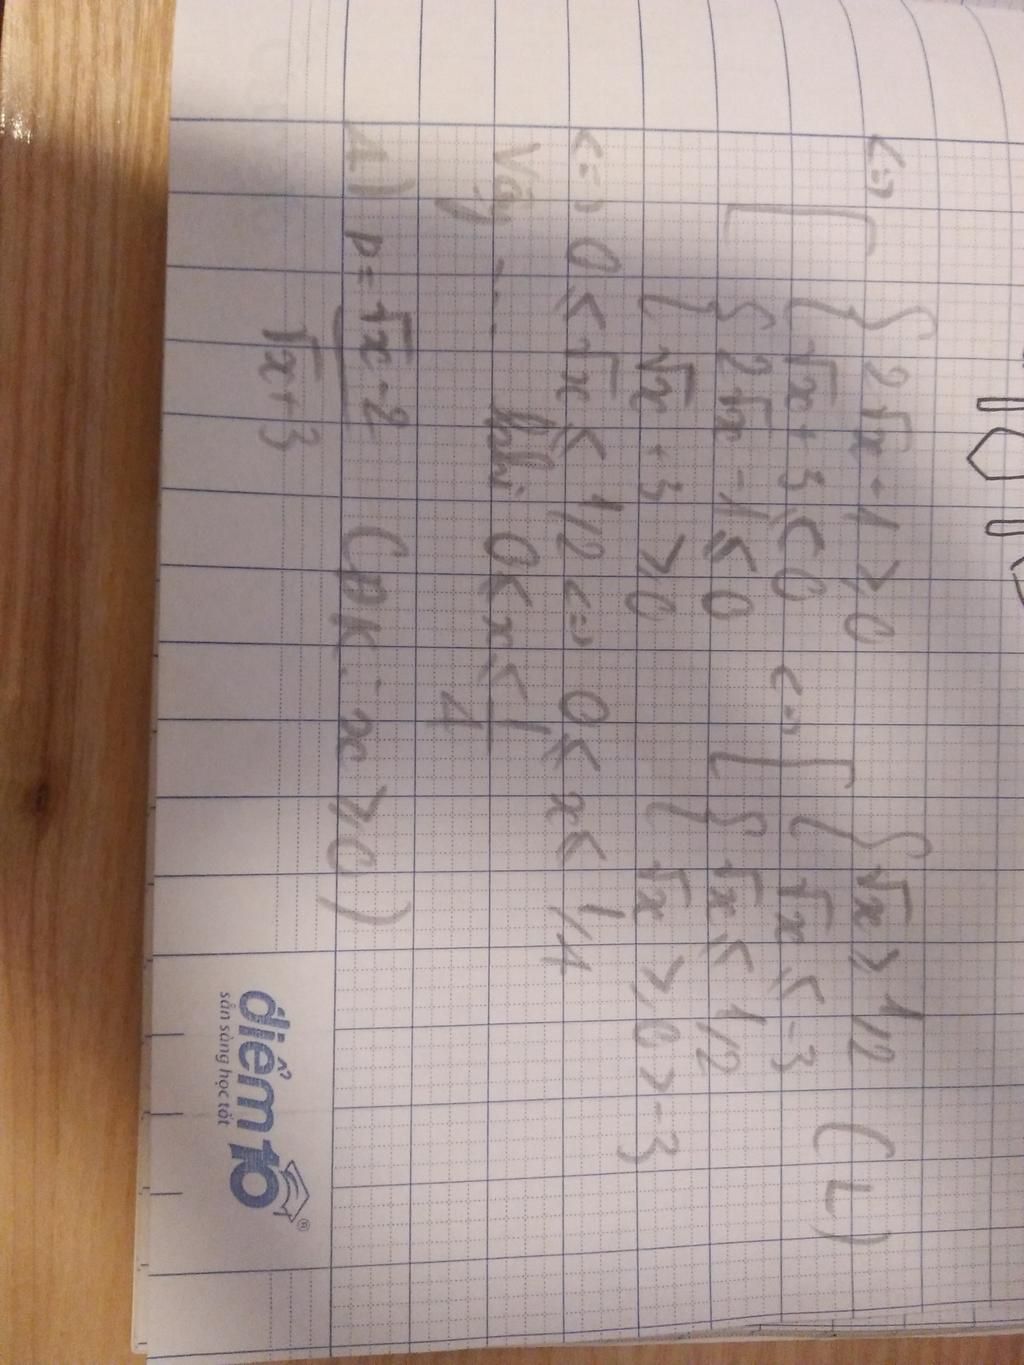 <=> [ { 2√x - 1 ≥ 0
{ √x + 3 ≤ 0
{ 2√x - 1 ≤ 0
{ √x + 3 ≥ 0
<=> [ { √x ≥ 1/2 (L)
{ √x ≤ -3
{ √x ≤ 1/2
{ √x ≥ 0 > -3
<=> 0 ≤ √x ≤ 1/2 <=> 0 ≤ x ≤ 1/4
Vậy ... khi 0 ≤ x ≤ 1/4
4) P = (√x - 2)/(√x + 3) (ĐK: x ≥ 0)
điểm10®
sẵn sàng học tốt